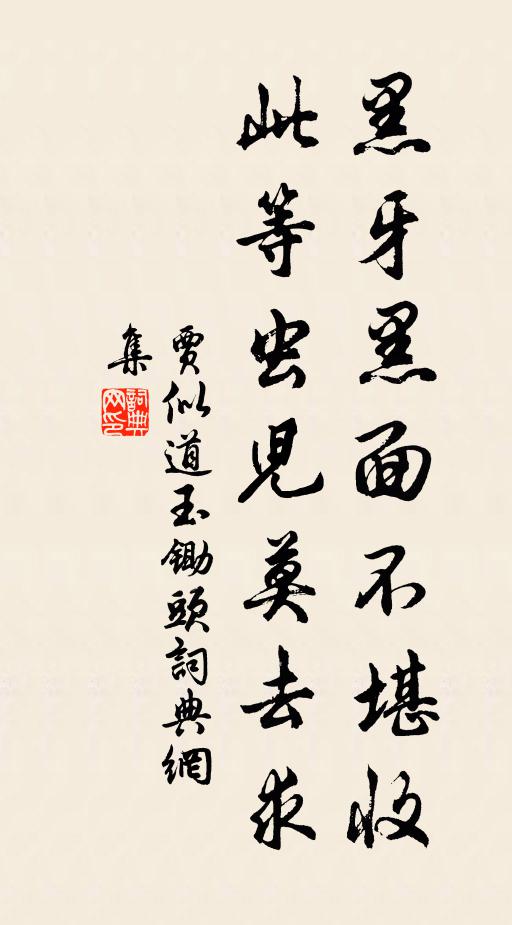 黑牙黑面不堪收
此等虫児莫去求
賈似道玉鋤頭詞典網
集
詞典
网印